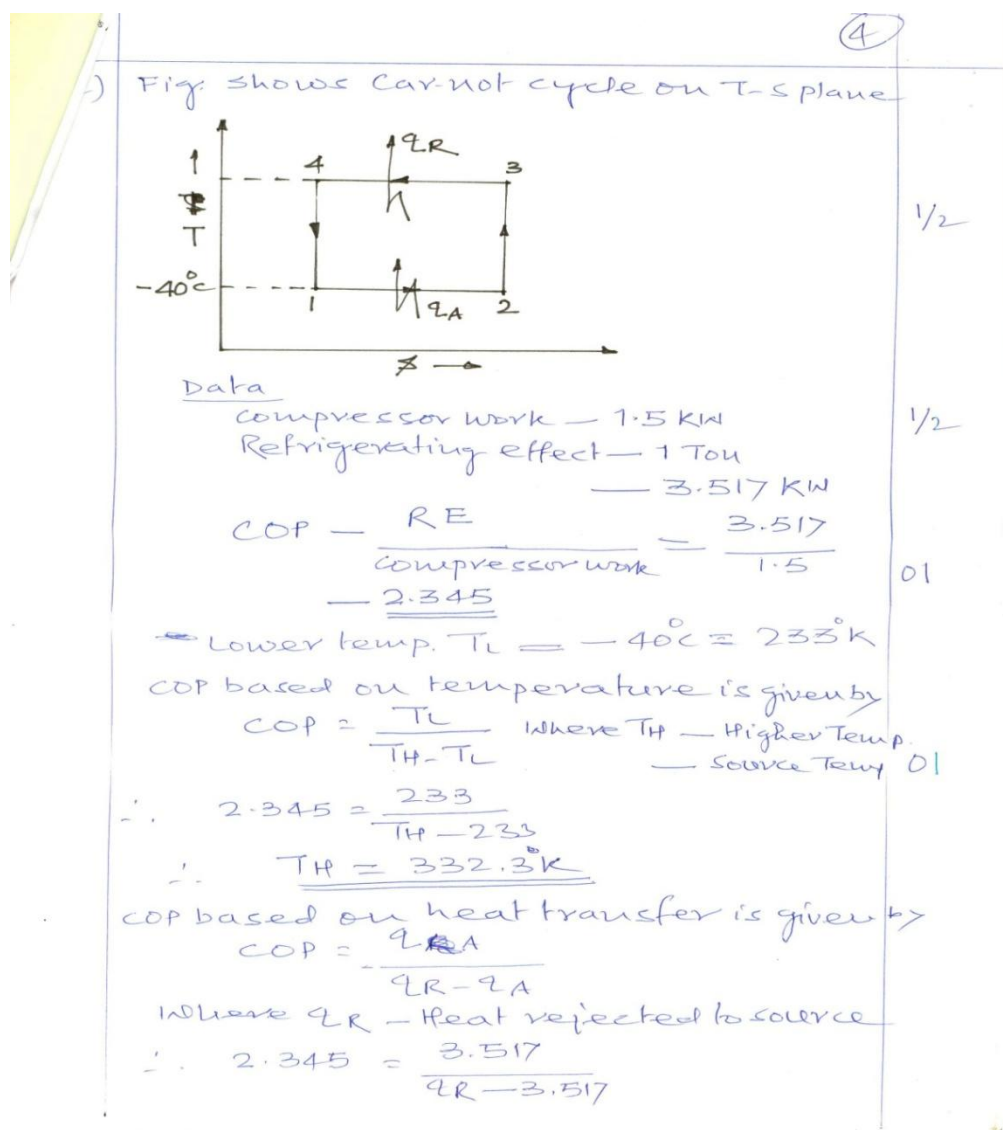 4
) Fig. shows Car-not cycle on T-s plane
qR
4 3
T 1/2
-40°c
1 qA 2
s
Data
compressor work — 1.5 KW 1/2
Refrigerating effect — 1 Ton
— 3.517 KW
COP — RE = 3.517
compressor work 1.5 01
— 2.345
Lower temp. TL = -40°c = 233°K
COP based on temperature is given by
COP = TL where TH — Higher Temp.
TH - TL — Source Temp 01
∴ 2.345 = 233
TH — 233
∴ TH = 332.3°K
COP based on heat transfer is given by
COP = qA
qR - qA
Where qR — Heat rejected to source
∴ 2.345 = 3.517
qR — 3.517